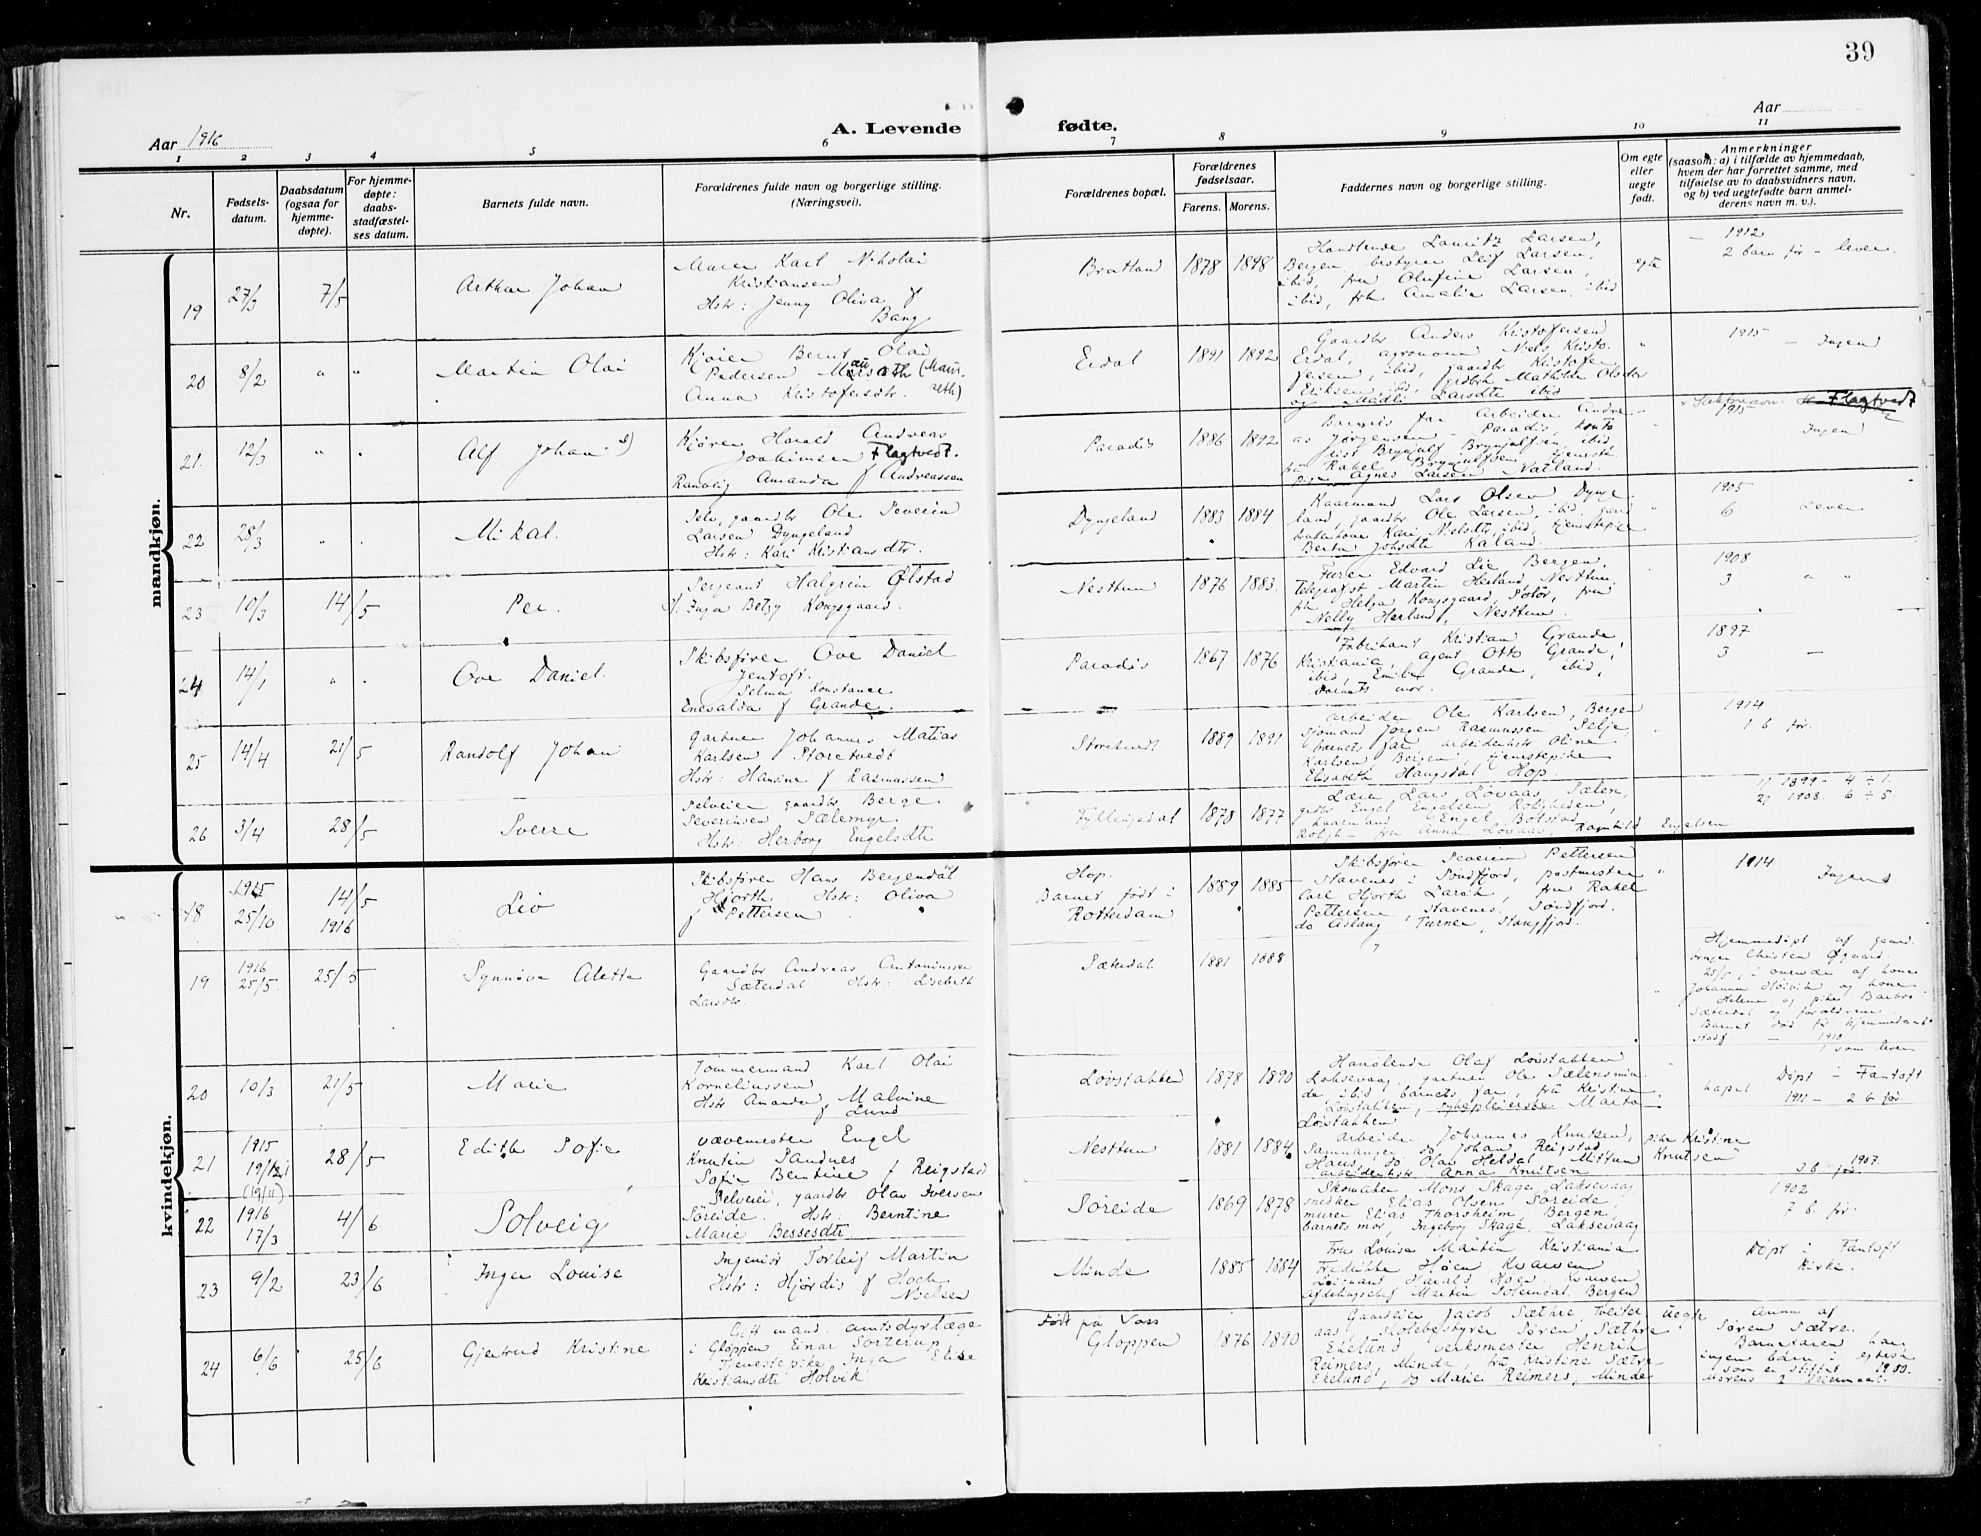 39
Aar 1916
A. Levende fødte.
Aar
1 2 3 4 5 6 7 8 9 10 11
Nr.
Fødsels-
datum.
Daabsdatum
(ogsaa for
hjemme-
døpte).
For hjemme-
døpte:
daabs-
stadfæstel-
ses datum.
Barnets fulde navn.
Forældrenes fulde navn og borgerlige stilling.
(Næringsvei).
Forældrenes bopæl.
Forældrenes
fødselsaar.
Farens. Morens.
Faddernes navn og stilling.
Om egte
eller
uegte
født.
Anmerkninger
(saasom: a) i tilfælde av hjemmedaab,
hvem der har forrettet samme, med
tilføielse av to daabsvidners navn,
og b) ved uegtefødte barn anmel-
derens navn m. v.).
mandkjøn.
19 27/3 7/5 Arthur Johan
Maler Karl Nikolai
Kristiansen
Hstr: Jenny Oliva f
Bang
Bratland 1878 1898
Handlende Lauritz Larsen,
Bergen, bestyrer Leif Larsen,
ibid, fru Olufine Larsen,
ibid, frk Amalie Larsen ibid
egte
1912
2 barn før – lever
20 8/2 " " Martin Olai
Bernt Olai
Pedersen
Anna Kristofersdtr.
Erdal 1891 1892
Gaardbr Anders Kristofersen
Erdal, agronom Niels Kristo-
fersen, ibid, gaardbr Kristofer
Eriksen, ibid, Mathilde Olsdtr
og Larsdtr ibid
"
1915
– Ingen
21. 12/3 " " Alf Johan
Kjører Harald Andreas
Joakimsen Flagtvedt.
Amanda f Andreassen
Paradis 1886 1892
Barnets far, arbeider Andre-
as Jørgensen – Paradis, konto
rist Brynjulf Brynjulfsen, ibid,
fru Rakel Brynjulfsen, tjeneste
pige Agnes Larsen Natland.
Flagtvedt
1915
Ingen
22 28/3 " " Mikal.
Selv. gaardbr Ole Severin
Larsen Dyngeland
Hstr: Kari Kristiansdtr.
Dyngeland 1883 1884
Kaarmand Lars Olsen Dynge
land, gaardbr Ole Larsen, ibid, gaard
brukerkone Kari Nielsdtr, ibid, tjenestepike
Berta Johsdtr Kaland.
"
1905
6 Lever
23 10/3 14/5 Per.
Sergeant Halgrim Ølstad
f. Inga Betzy Kongsgaard.
Nesttun 1876 1883.
Furer Edvard Lie Bergen,
Telegrafist Martin Herland, Nesttun,
frk Helga Kongsgaard, Solør, fru
Nelly Herland, Nesttun.
1908
3 " "
24 14/1 " " Ove Daniel.
Skibsfører Ove Daniel
Jentoft.
Selma Konstance
Enevalda f Grande.
Paradis 1867 1876
Fabrikant Kristian Grande,
Kristiania, agent Otto Grande,
ibid, Emilie Grande, ibid,
barnets mor.
1897
3 –
25 14/4 21/5 Randolf Johan
Gartner Johannes Matias
Karlsen Storetvedt
Hstr: Hansine f Rasmussen
Storetvedt 1889 1891
arbeider Ole Karlsen, Bergen
sjømand Jørgen Rasmussen Selje,
barnets far, arbeiderhstr Oline
Karlsen, Bergen, tjenestepike
Elisabeth Haugsdal Hop.
"
1914
1 b før.
26 3/4 28/5 Sverre
Selveier gaardbr Berge
Severinsen Sælemyr
Hstr: Herborg Engelsdtr
Fyllingsdal 1870 1877
Lars Løvaas, Sælen,
Engel Engelsen, Roligheden,
kaarmand Engel Bolstad
fru Anna Løvaas, Ragnhild Engelsen
1) 1899 – 4 ÷ 1.
2) 1908. 6 ÷ 5
kvindekjøn.
18 1915 25/10 14/5 1916 Liv
Skibsfører Hans Bergendal
Hjorth Hstr: Oliva
f Pettersen
Hop.
Barnet født i
Rotterdam 1889 1885
Skibsfører Severin Pettersen
Stavenes i Søndfjord, postmester
Carl Hjorth Larvik, fru Rakel
Pettersen, Stavenes, Søndfjord.
do Aslaug Turner, Stangfjord.
"
1914
Ingen
19 1916 25/5. 25/5 Synnøve Alette
Gaardbr Andreas Antoniussen
Sæterdal. Hstr: Lisebeth
Larsdtr.
Sæterdal 1881 1888
"
Hjemmedøpt af gaard-
bruger Christen Øgaard.
25/5, i overvær af kone
Johanna Høivik og kone
Helene og pike Barbro
Sæterdal og forældrene.
Barnet død før hjemmedaab
stadf. – 1910
1 som lever
20 10/3 21/5 Marie
Tømmermand Karl Olai
Korneliussen
Hstr Amanda, Malvine
f Lund
Løvstakken 1878 1890
Handlende Olaf Løvstakken
Laksevaag, gartner Ole Sælensmin-
de, ibid, barnets far, fru Kristine
Løvstakken, sykepleierske Marta
Løvstakken
Døpt i Fantoft
kapel
1911 – 2 b før.
21 1915 19/12 (19/11) 28/5 Edith Sofie
vævemester Engel
Knutin Sandnes
Sofie Bentine f Reigstad
Nesttun 1881 1884
Arbeider Johannes Knutsen,
Samnanger, do Johan Reigstad,
Haus, do Olav Heldal Midttun
arbeiderhstr Anna Knutsen
pike Kristine
Knutsen
1907
3 b før
22 1916 17/3 4/6 Solveig
Selveier, gaardbr Olav Iversen
Søreide. Hstr: Berntine
Marie Bessesdtr
Søreide 1869 1878
Skomaker Mons Skage, Laksevaag
snedker Elias Olsen Søreide,
murer Elias Thorsheim, Bergen,
barnets mor, Ingeborg Skage, Laksevaag
1902
7 b. før.
23 9/2 23/6 Inger Louise
Ingeniør Torleif Martin
Hstr: Hjørdis f Hoch
Nielsen
Minde 1885 1884
Fru Louise Martin, Kristiania
Fredrikke Høen, Kvarven
Løitnant Harald Høen Kvarven
afdelingschef Martin Solemdal, Bergen
Døpt i Fantoft
kirke.
24 6/6 25/6 Gjertrud Kristine
Gift mand. amtsdyrlæge
i Gloppen Einar Sorterup
Tjenestepike Inga Elise
Kristiansdtr Holvik
Født på Voss
Gloppen 1876 1890
Gaardeier Jacob Sæthre, Tveiter
aas, skolebestyrer Søren Sæthre
Ekeland, verksmester Henrik
Reimers, Minde, fru Kristine Sætre
Ekeland, do Marie Reimers, Minde
uegte
Anm af
Søren Sætre.
Barnefaren har
ingen barn i egtesk.
som er stiftet 1909.
Morens 2 leiermaal.